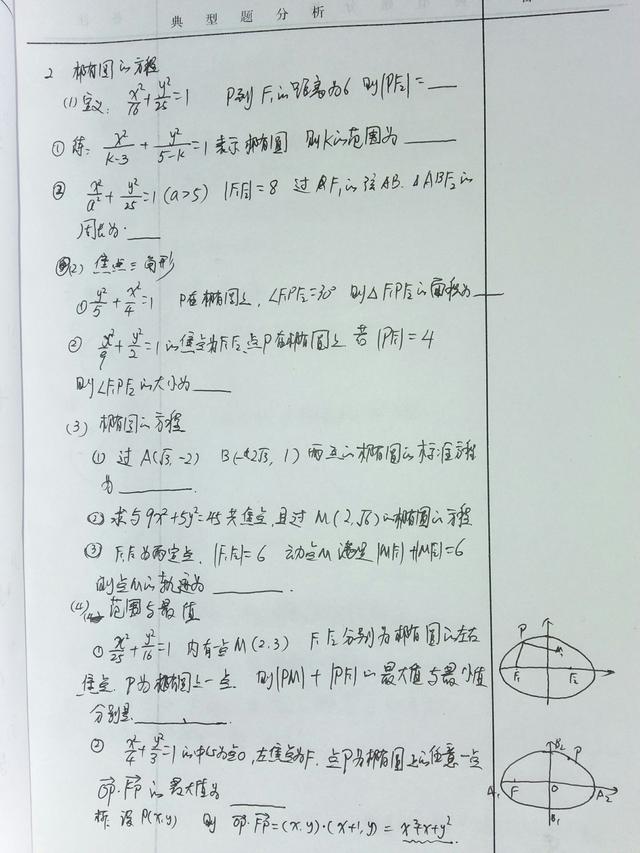 典型题分析
2 椭圆的方程
(1) 定义: x²/16 + y²/25 = 1 P到F₁的距离为6 则|PF₂| = ___
① 练: x²/(k-3) + y²/(5-k) = 1 表示椭圆 则k的范围为 ___
② x²/a² + y²/25 = 1 (a>5) |F₁F₂| = 8 过F₁的弦AB. △ABF₂的
周长为. ___
(2) 焦点三角形
① y²/5 + x²/4 = 1 P在椭圆上, ∠F₁PF₂=30° 则△F₁PF₂的面积为 ___
② x²/9 + y²/2 = 1的焦点为F₁F₂ 点P在椭圆上 若|PF₁| = 4
则∠F₁PF₂的大小为 ___
(3) 椭圆的方程
① 过A(√3, -2) B(-2√3, 1) 两点的椭圆的标准方程
为 ___.
② 求与9x²+5y²=45共焦点, 且过M(2, √6)的椭圆的方程
③ F₁F₂为两定点, |F₁F₂|=6 动点M满足|MF₁|+|MF₂|=6
则点M的轨迹为 ___.
(4) 范围与最值
① x²/25 + y²/16 = 1 内有一点M(2.3) F₁F₂分别为椭圆的左右
焦点. P为椭圆上一点. 则|PM| + |PF₁|的最大值与最小值
分别是. ___
② x²/4 + y²/3 = 1的中心为点O, 左焦点为F. 点P为椭圆上的任意一点
OP·FP的最大值为 ___
解: 设P(x,y) 则 OP·FP=(x,y)·(x+1,y) = x²+x+y²
P
F₁
F₂
B₂
P
A₁
F
O
A₂
B₁